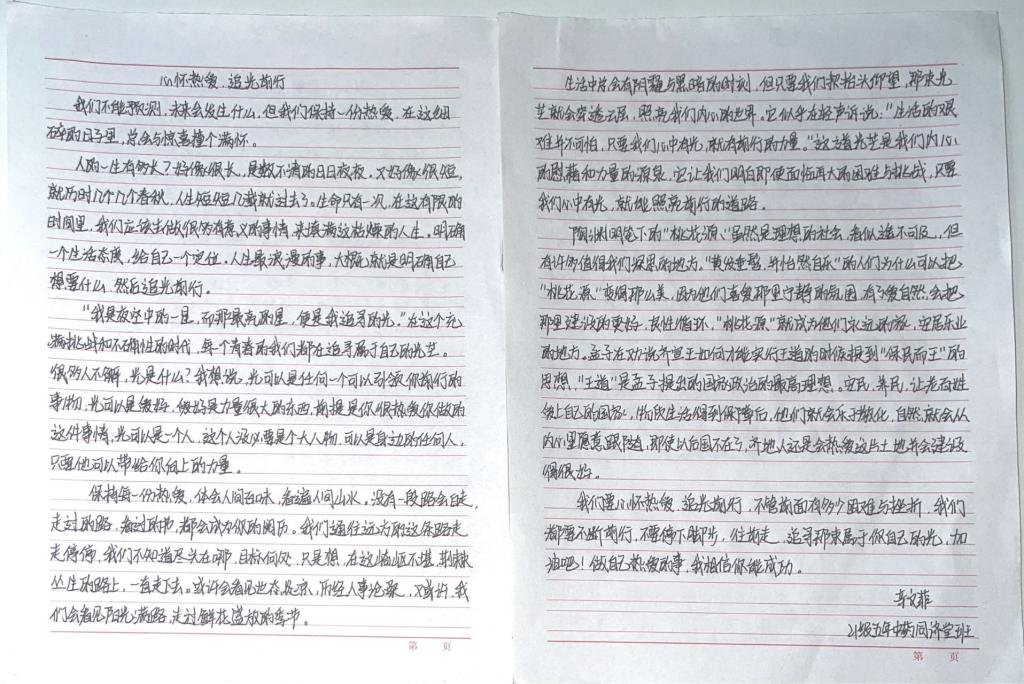 心怀热爱，追光前行
我们不能预测，未来会发生什么，但我们保持一份热爱，在这细
碎的日子里，总会与惊喜撞个满怀。
人的一生有多久？好像很长，是数不清的日日夜夜。又好像很短，
就历时几个几个春秋，人生短短几载就过去了。生命只有一次，在这有限的
时间里，我们应该去做很多有意义的事情，来填满这枯燥的人生。明确
一个生活态度，给自己一个定位。人生最浪漫的事，大概就是明确自己
想要什么，然后追光前行。
“我是夜空中的一星，而那最亮的星，便是我追寻的光。”在这个充
满挑战和不确性的时代，每个青春的我们都在追寻属于自己的光芒。
很多人不解，光是什么？我想说，光可以是任何一个可以引领你前行的
事物，光可以是爱好，爱好是力量很大的东西，前提是你很热爱你做的
这件事情，光可以是一个人，这个人没必要是个大人物，可以是身边的任何人，
只要他可以带给你向上的力量。
保持每一份热爱，体会人间百味，看遍人间山水。没有一段路会白走，
走过的路，看过的书，都会成为你的阅历。我们通往远方的这条路走
走停停，我们不知道尽头在哪，目标何处，只是想，在这崎岖不堪，荆棘
丛生的路上，一直走下去。或许会看见世态炎凉，历经人事沧桑，又或许，我
们会看见阳光满路，走过鲜花盛放的季节。
第 页
生活中总会有阴霾与黑暗的时刻，但只要我们抬头仰望，那束光
芒就会穿透云层，照亮我们内心的世界。它似乎在轻声诉说：“生活的艰
难并不可怕，只要我们心中有光，就有前行的力量。”这道光芒是我们内心
的慰藉和力量的源泉，它让我们明白即使面临再大的困难与挑战，只要
我们心中有光，就能照亮前行的道路。
陶渊明笔下的“桃花源”，虽然是理想的社会，看似遥不可及，但
有许多值得我们深思的地方。“黄发垂髫，并怡然自乐”的人们为什么可以把
“桃花源”变得那么美，因为他们喜爱那里宁静的氛围，有了爱自然会把
那里建设的更好，良性循环，“桃花源”就成为他们永远的家，安居乐业
的地方。孟子在劝说齐宣王如何才能实行王道的时候提到“保民而王”的
思想，“王道”是孟子提出的国家政治的最高理想。安民，养民，让老百姓
爱上自己的国家，物质生活得到保障后，他们就会乐于教化，自然就会从
内心里愿意跟随，即使以后国不在了，齐地人还是会热爱这片土地并会建设
得很好。
我们要心怀热爱，追光前行，不管前面有多少困难与挫折，我们
都要不断前行，不要停下脚步，往前走，追寻那束属于你自己的光，加
油吧！做自己热爱的事，我相信你能成功。
辛文菲
21级五年中药同济堂班
第 页